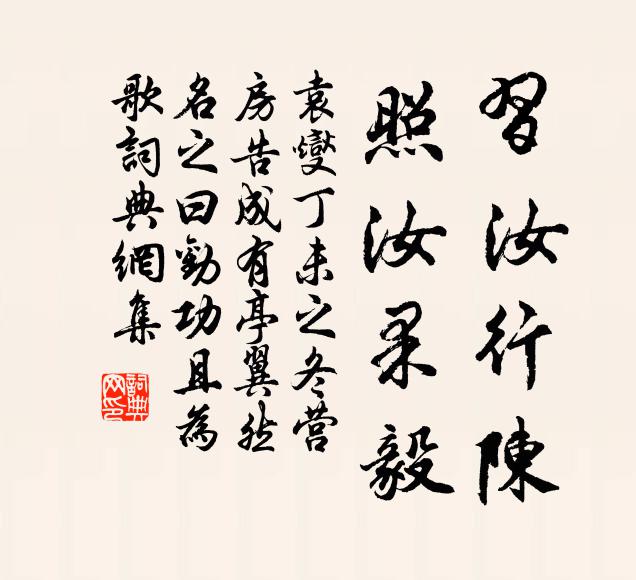 習汝行陳
照汝果毅
袁燮丁未之冬營
房告成有亭翼然
名之曰勸功且為
歌詞典網集
詞典網印